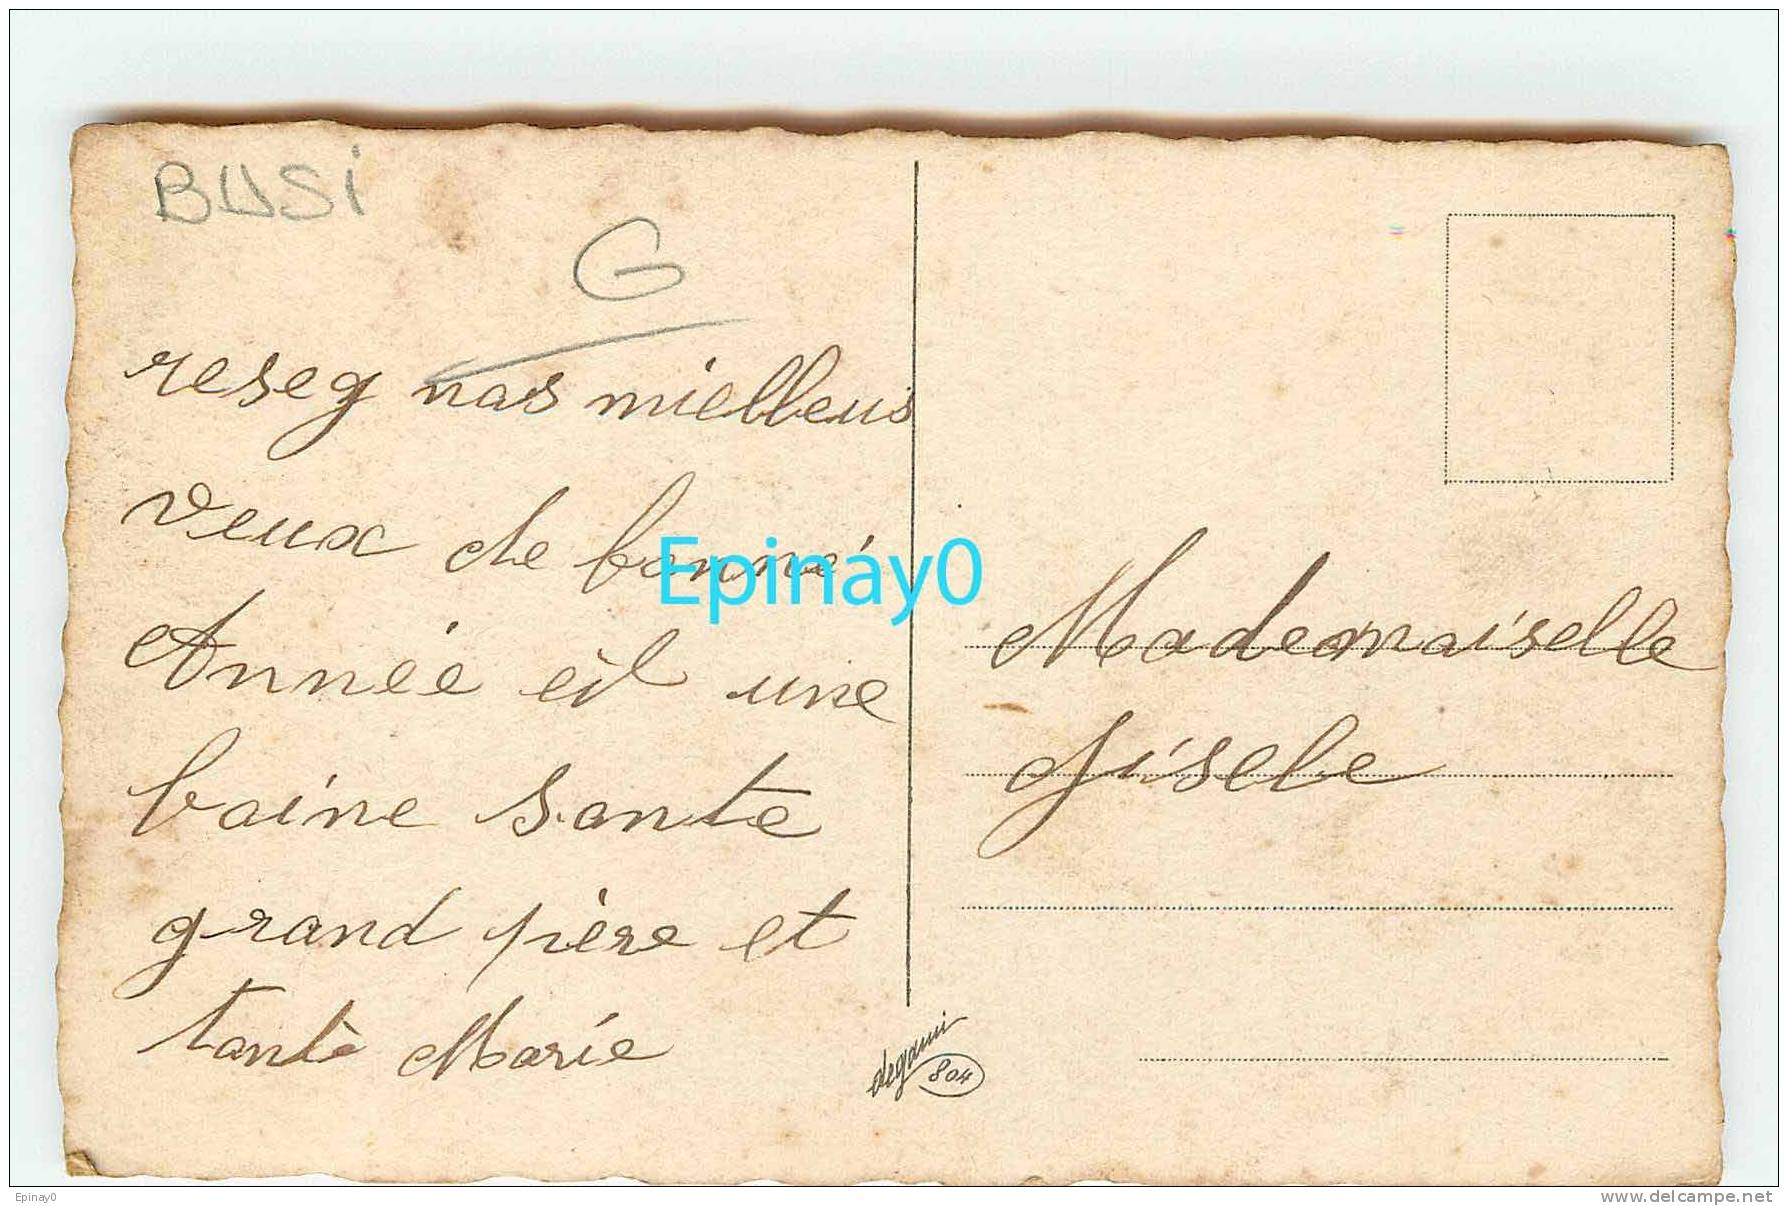 BUSi
G
reseq nos mielleus
veux de bonné
Année eil une
boine sante
grand pière et
tante Marie
Mademaiselle
Gisele
degami
804
Epinay0
Epinay0
www.delcampe.net